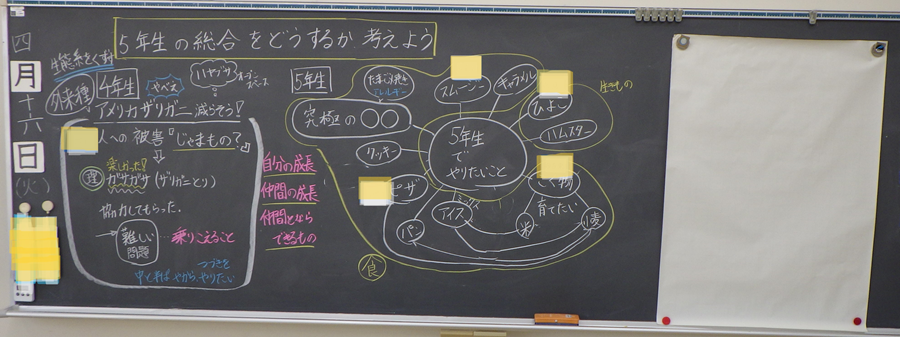 四
月
十
六
日
(火)
5年生の総合をどうするか考えよう
生態系をくずす
外来種
4年生
やべえ
ハヤブサ
オープンスペース
アメリカザリガニ減らそう!
人への被害『じゃまもの?』
楽しかった!
理
ガサガサ(ザリガニとり)
協力してもらった.
難しい
問題
乗りこえること
つづきを
中とはんぱだから、やりたい
自分の成長
仲間の成長
仲間となら
できるもの
5年生
究極の〇〇
たまご焼き
アレルギー
スムージー
キャラメル
生きもの
ひよこ
ハムスター
クッキー
5年生
で
やりたいこと
ピザ
アイス
パン
育てたい
米
小麦
食